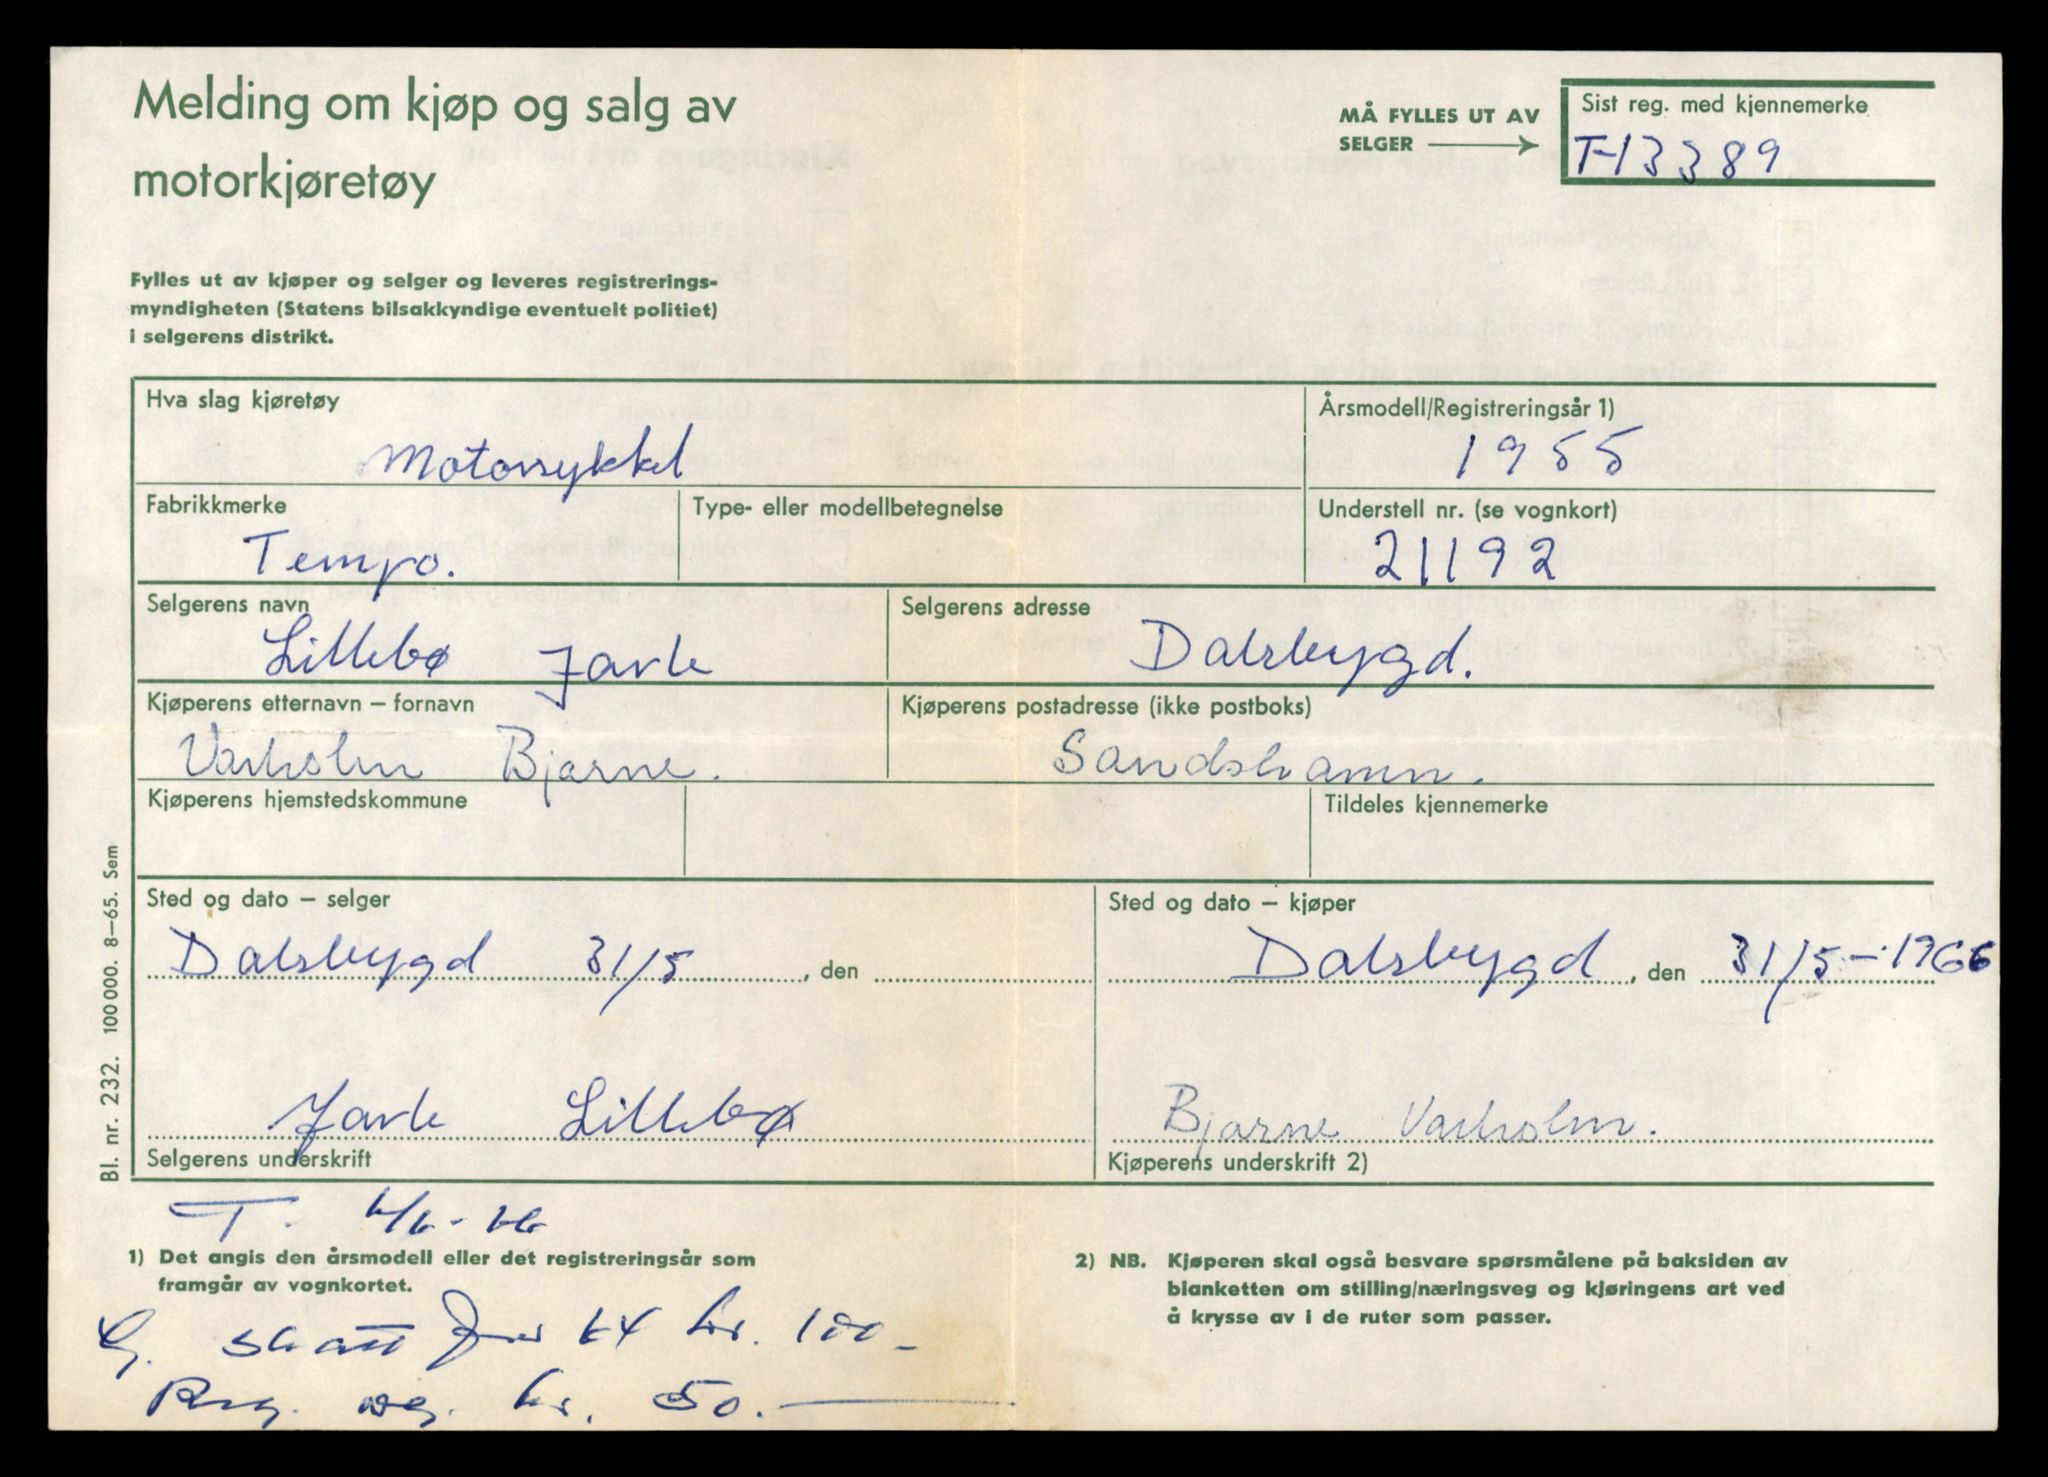 Melding om kjøp og salg av
motorkjøretøy
MÅ FYLLES UT AV
SELGER
Sist reg. med kjennemerke
T-13389
Fylles ut av kjøper og selger og leveres registrerings-
myndigheten (Statens bilsakkyndige eventuelt politiet)
i selgerens distrikt.
Hva slag kjøretøy
Motorsykkel
Årsmodell/Registreringsår 1)
1955
Fabrikkmerke
Tempo.
Type- eller modellbetegnelse
Understell nr. (se vognkort)
21192
Selgerens navn
Lillebø Jarle
Selgerens adresse
Dalsbygd.
Kjøperens etternavn – fornavn
Varholm Bjarne.
Kjøperens postadresse (ikke postboks)
Sandshamn.
Kjøperens hjemstedskommune
Tildeles kjennemerke
Sted og dato – selger
Dalsbygd 31/5, den
Sted og dato – kjøper
Dalsbygd, den 31/5-1966
Jarle Lillebø
Selgerens underskrift
Bjarne Varholm.
Kjøperens underskrift 2)
Bl. nr. 232. 100 000. 8–65. Sem
T.
1) Det angis den årsmodell eller det registreringsår som
framgår av vognkortet.
2) NB. Kjøperen skal også besvare spørsmålene på baksiden av
blanketten om stilling/næringsveg og kjøringens art ved
å krysse av i de ruter som passer.
skatt kr. 100-
Reg. kr. 50.